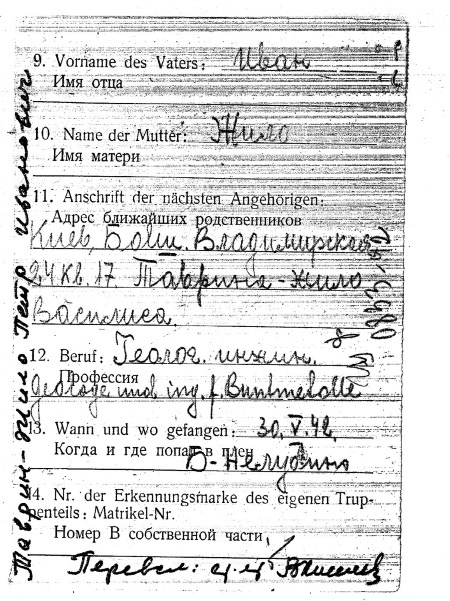 9. Vorname des Vaters: Иван
Имя отца
10. Name der Mutter: Жило
Имя матери
11. Anschrift der nächsten Angehörigen:
Адрес ближайших родственников
Киев, Больш. Владимирская
24 кв. 17. Таврина-Жило
Василиса.
12. Beruf: Геолог. инжин.
Профессия
Geologe und ing. f. Buntmetalle
13. Wann und wo gefangen: 30.V.42.
Когда и где попал в плен
14. Nr. der Erkennungsmarke des eigenen Trup-
penteils: Matrikel-Nr.
Номер В собственной части
Перевел:
Таврин-Жило Петр Иванович